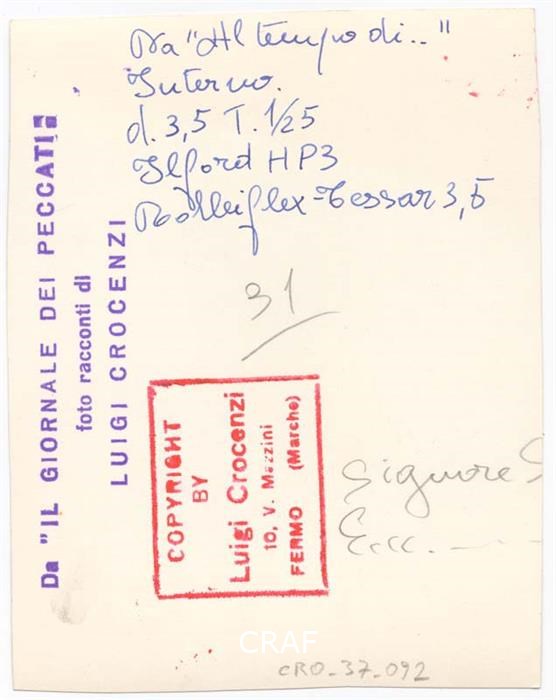 Da "Al tempo di.."
Interno.
d. 3,5 T. 1/25
Ilford HP3
Rolleiflex-Tessar 3,5
31
Da "IL GIORNALE DEI PECCATI"
foto racconti di
LUIGI CROCENZI
COPYRIGHT
BY
Luigi Crocenzi
10, V. Mazzini
FERMO (Marche)
Signore S
Ecc.
CRAF
CRO_37_092